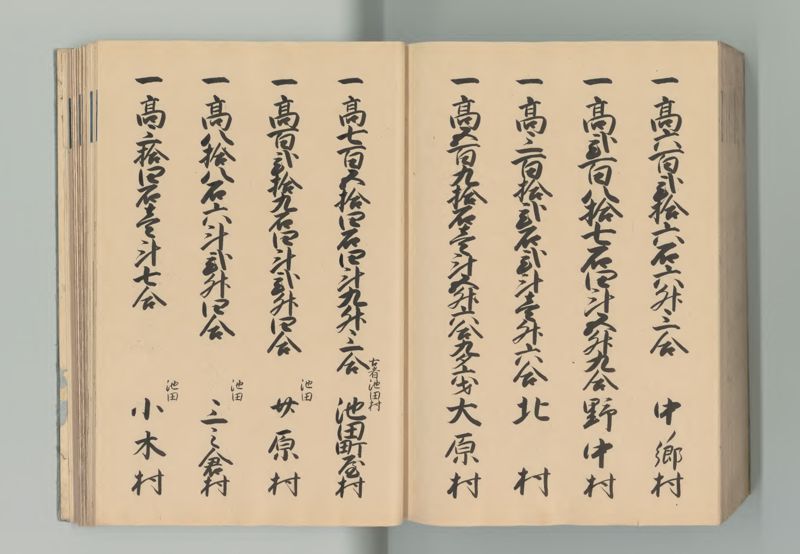 一 高六百弐拾六石六升三合 中ノ郷村
一 高弐百八拾七石四斗五升九合 野中村
一 高三百拾弐石弐斗壱升六合 北村
一 高五百九拾石壱斗五升六合九夕五才 大原村
一 高七百五拾四石四斗九升三合 古者池田村 池田町屋村
一 高百弐拾九石四斗弐升四合 池田 廿原村
一 高八拾八石六斗弐升四合 池田 三之倉村
一 高三拾四石壱斗七合 池田 小木村